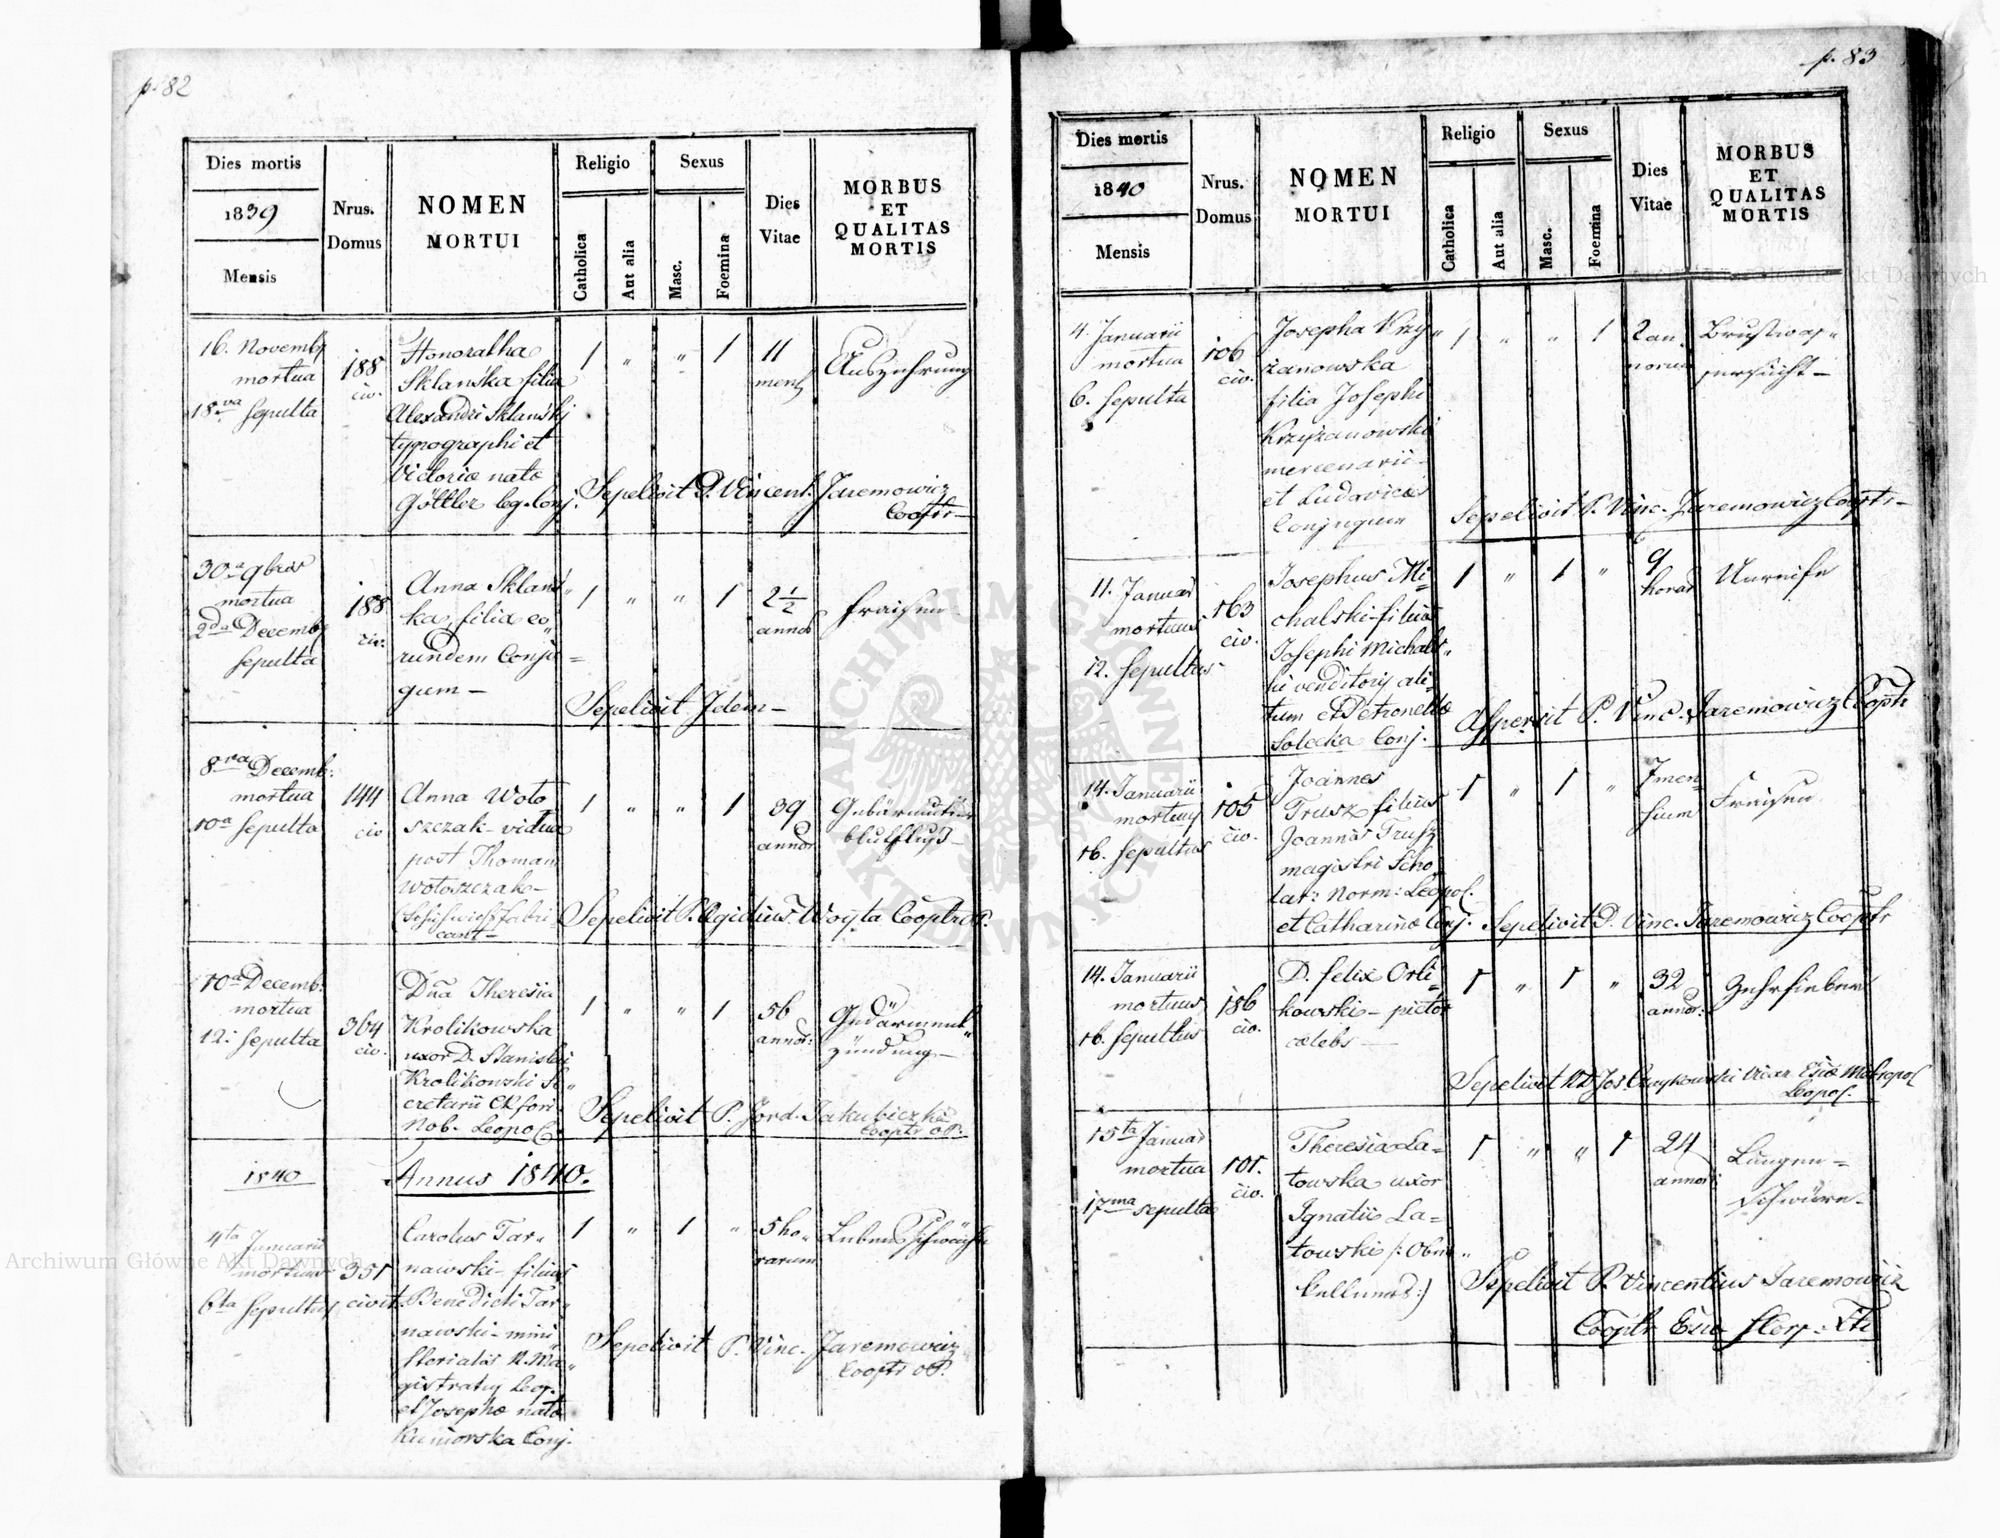 p. 82
Dies mortis
1839
Mensis
Nrus.
Domus
NOMEN
MORTUI
Religio
Catholica
Aut alia
Sexus
Masc.
Foemina
Dies
Vitae
MORBUS
ET
QUALITAS
MORTIS
16. Novemb
mortua
18va sepulta
188
civ.
Honoratha
Sklańska filia
Alexandri Sklański
typographi et
Victoriæ natæ
Göttler leg. Conj.
1 " " 1
11
mens
Auszehrung
Sepelivit P. Vincent. Jaremowicz
Cooptr
30a 9bris
mortua
2da Decemb
sepulta
188
civ.
Anna Sklań
ka, filia eo
rundem Conju=
gum –
1 " " 1
2 1/2
annor
Fraisen
Sepelivit Idem –
8va Decemb:
mortua
10a sepulta
144
civ
Anna Woło
szczak vidua
post Thomam
Wołoszczak
1 " " 1
39
annor
Gebärmutter
blutfluß
Sepelivit P. Egidius Woyta Cooptr OP.
10a Decemb:
mortua
12: sepulta
364
civ.
Dña Theresia
Krolikowska
uxor D. Stanislai
Krolikowski Se
cretarii C R fori
Nob. Leopol.
1 " " 1
56
annor:
Gedärment
zündung –
Sepelivit P. Jord. Jakubiczki
Cooptr OP.
1840
Annus 1840.
4ta Januarii
mortuus
6ta sepultus
351
civit.
Carolus Tar
nawski filius
Benedicti Tar
nawski – mini
sterialis N. Ma
gistratus Leop.
et Josephæ natæ
Kuniorska Conj.
1 " 1 "
5 ho
rarum
Lebensschwäche
Sepelivit P. Vinc. Jaremowicz
Cooptr OP.
p. 83
Dies mortis
1840
Mensis
Nrus.
Domus
NOMEN
MORTUI
Religio
Catholica
Aut alia
Sexus
Masc.
Foemina
Dies
Vitae
MORBUS
ET
QUALITAS
MORTIS
4. Januarii
mortua
6. sepulta
106
civ.
Josepha Krzy
żanowska
filia Josephi
Krzyżanowski
mercenarii
et Ludovicæ
Conjugum
1 " " 1
2 an
norum
Brustwas
sersucht –
Sepelivit P. Vinc. Jaremowicz Cooptr –
11. Januar
mortuus
12. sepultus
163
civ.
Josephus Mi
chalski filius
Josephi Michals
ki venditoris ali
tum et Petronellæ
Solecka Conj.
1 " 1 "
9
horar
Unreife
Aspersit P. Vinc. Jaremowicz Cooptr
14. Januarii
mortuus
16. sepultus
105
civ.
Joannes
Trusz filius
Joannis Trusz
magistri Scho
lar: Norm: Leopol.
et Catharinæ Conj.
1 " 1 "
7 men
sium
Fraisen
Sepelivit P. Vinc. Jaremowicz Cooptr
14. Januarii
mortuus
16. sepultus
186
civ.
D. Felix Orli
kowski – pictor
cælebs
1 " 1 "
32
annor:
Zehrfieber
Sepelivit Vicar. Metropol
Leopol.
15ta Januar
mortua
17ma sepulta
101.
civ.
Theresia La=
towska uxor
Ignatii La=
towski
1 " " 1
24
annor
Lungen=
Sepelivit P. Vincentius Jaremowicz
Cooptr
ARCHIWUM GŁÓWNE AKT DAWNYCH
Archiwum Główne Akt Dawnych
Archiwum Główne Akt Dawnych